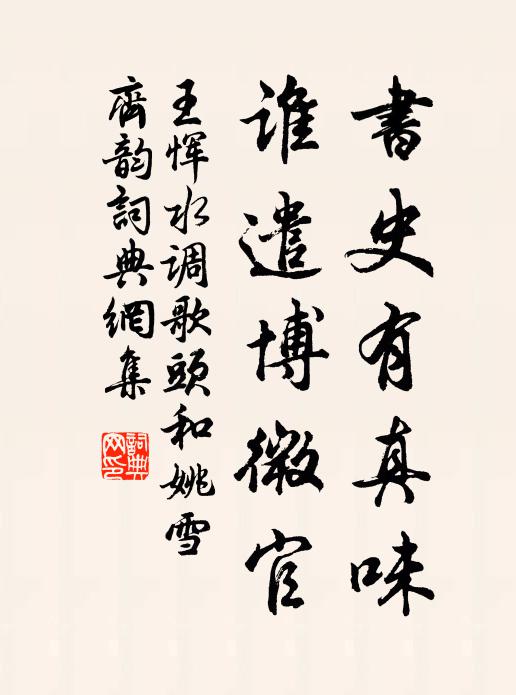 書史有真味
谁遣博微官
王恽水调歌頭和姚雪
齋韵詞典網集
詞典网印